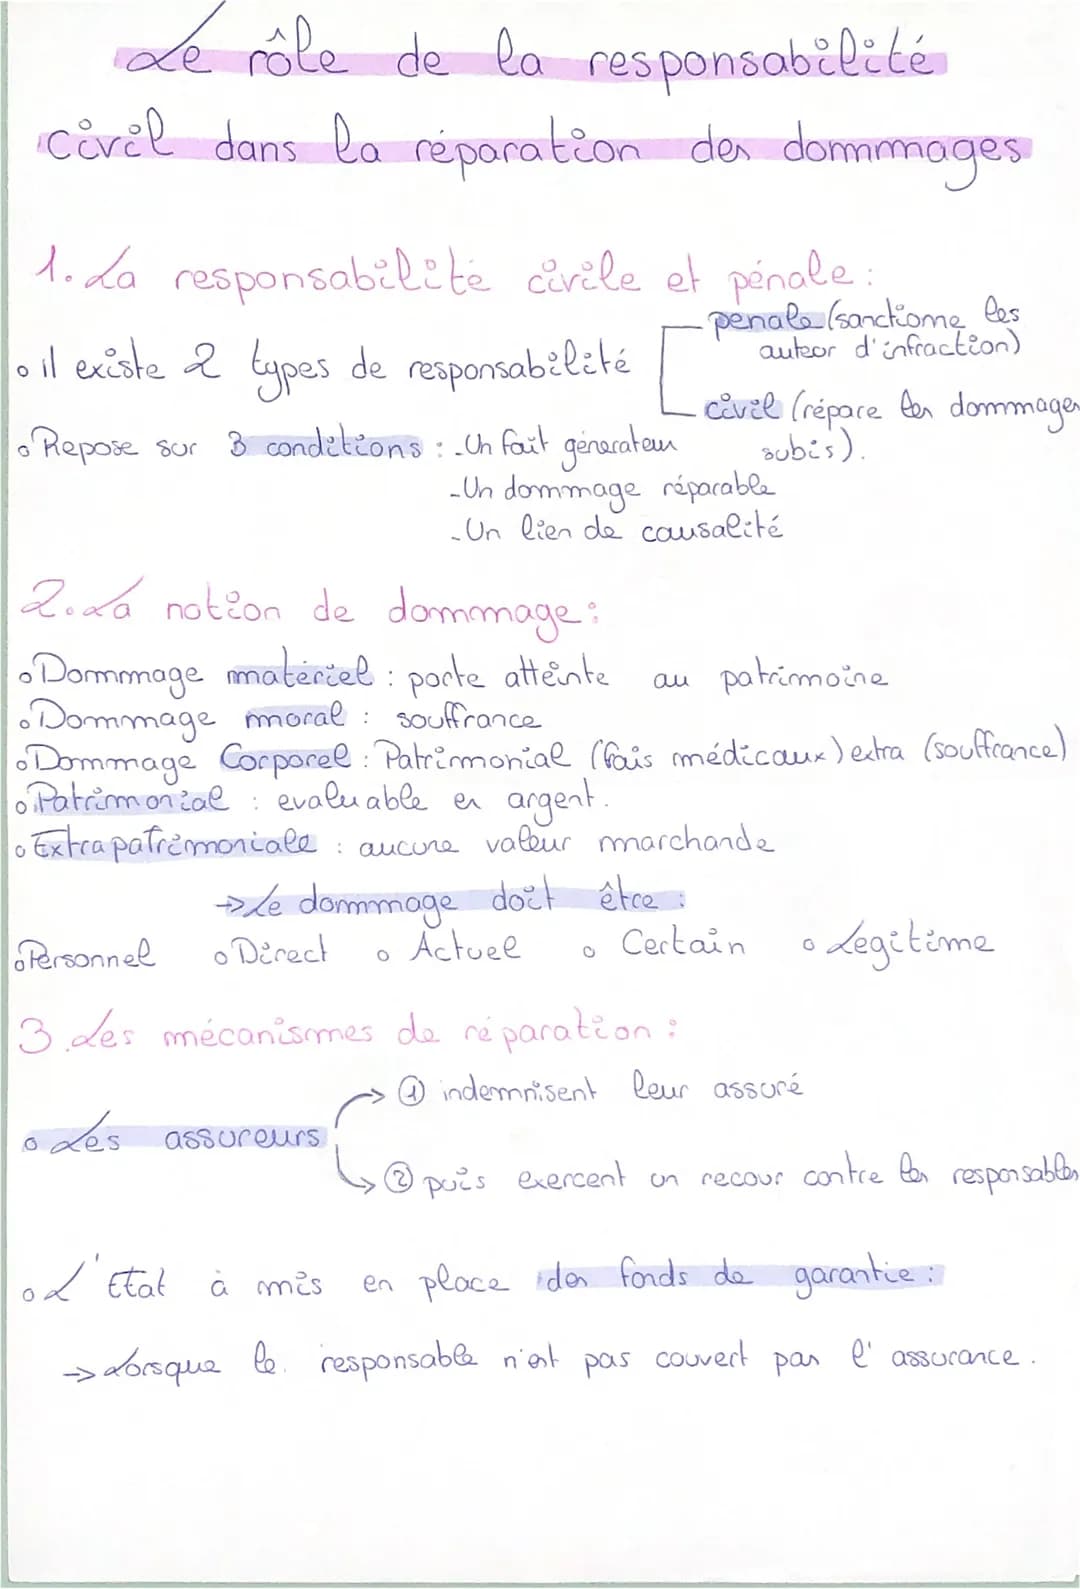 Le rôle de la responsabilité
civil dans la réparation des dommages
1. La responsabilité civile et pénale :
penale (sanctionne les
auteor d'infraction)
o il existe 2 types de responsabilité
civil (répare les dommages
subis).
o Repose sur 3 conditions : - Un fait générateur
- Un dommage réparable
- Un lien de causalité
2. La notion de dommage :
o Dommage matériel : porte atteinte au patrimoine
o Dommage moral : souffrance
o Dommage Corporel : Patrimonial (frais médicaux) extra (souffrance)
o Patrimonial : evaluable en argent.
o Extrapatrimoniale : aucune valeur marchande
→ Le dommage doit être :
o Personnel o Direct o Actuel o Certain o Legitime
3. Les mécanismes de réparation :
→ ① indemnisent leur assuré
o Les assureurs
→ ② puis exercent un recour contre les responsables
o L'Etat à mis en place des fonds de garantie :
→ Lorsque le responsable n'est pas couvert par l'assurance.